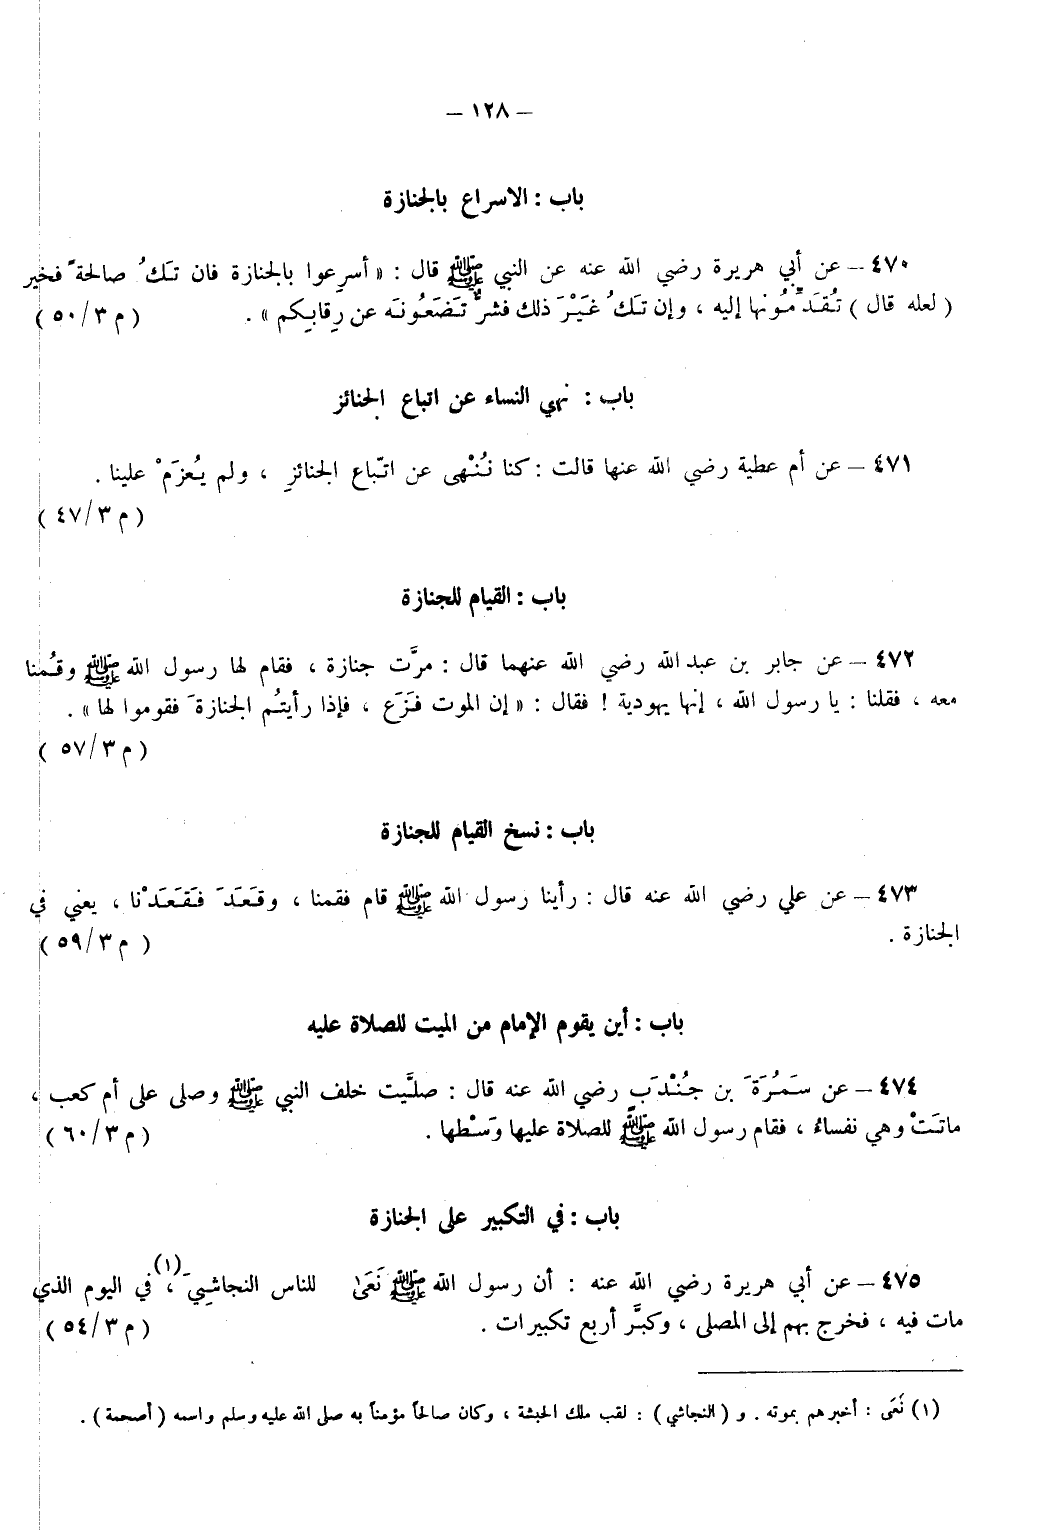 – ١٢٨ –
باب : الاسراع بالجنازة
٤٧٠ – عن أبي هريرة رضي الله عنه عن النبي ﷺ قال : « أسرِعوا بالجنازة فان تَكُ صالحةً فخير
( لعله قال ) تُقَدِّمُونها إليه ، وإن تَكُ غَيْرَ ذلك فشرٌّ تَضَعُونَه عن رِقابِكم » . ( م ٣/٥٠ )
باب : نهي النساء عن اتباع الجنائز
٤٧١ – عن أم عطية رضي الله عنها قالت : كنا نُنْهى عن اتّباع الجنائزِ ، ولم يُعزَمْ علينا .
( م ٣/٤٧ )
باب : القيام للجنازة
٤٧٢ – عن جابر بن عبد الله رضي الله عنهما قال : مرَّت جنازة ، فقام لها رسول الله ﷺ وقُمنا
معه ، فقلنا : يا رسول الله ، إنها يهودية ! فقال : « إن الموت فَزَع ، فإذا رأيتُم الجنازةَ فقوموا لها » .
( م ٣/٥٧ )
باب : نسخ القيام للجنازة
٤٧٣ – عن علي رضي الله عنه قال : رأينا رسول الله ﷺ قام فقمنا ، وقَعَدَ فَقَعَدْنا ، يعني في
الجنازة . ( م ٣/٥٩ )
باب : أين يقوم الإمام من الميت للصلاة عليه
٤٧٤ – عن سَمُرَةَ بن جُنْدَبٍ رضي الله عنه قال : صلَّيت خلف النبي ﷺ وصلى على أم كعب ،
ماتَتْ وهي نفساءُ ، فقام رسول الله ﷺ للصلاة عليها وَسْطها . ( م ٣/٦٠ )
باب : في التكبير على الجنازة
٤٧٥ – عن أبي هريرة رضي الله عنه : أن رسول الله ﷺ نَعَىٰ للناس النجاشِيَ ،(١) في اليوم الذي
مات فيه ، فخرج بهم إلى المصلى ، وكبَّر أربع تكبيرات . ( م ٣/٥٤ )
(١) نَعَى : أخبرهم بموته . و ( النجاشي ) : لقب ملك الحبشة ، وكان صالحاً مؤمناً به صلى الله عليه وسلم واسمه ( أصحمة ) .